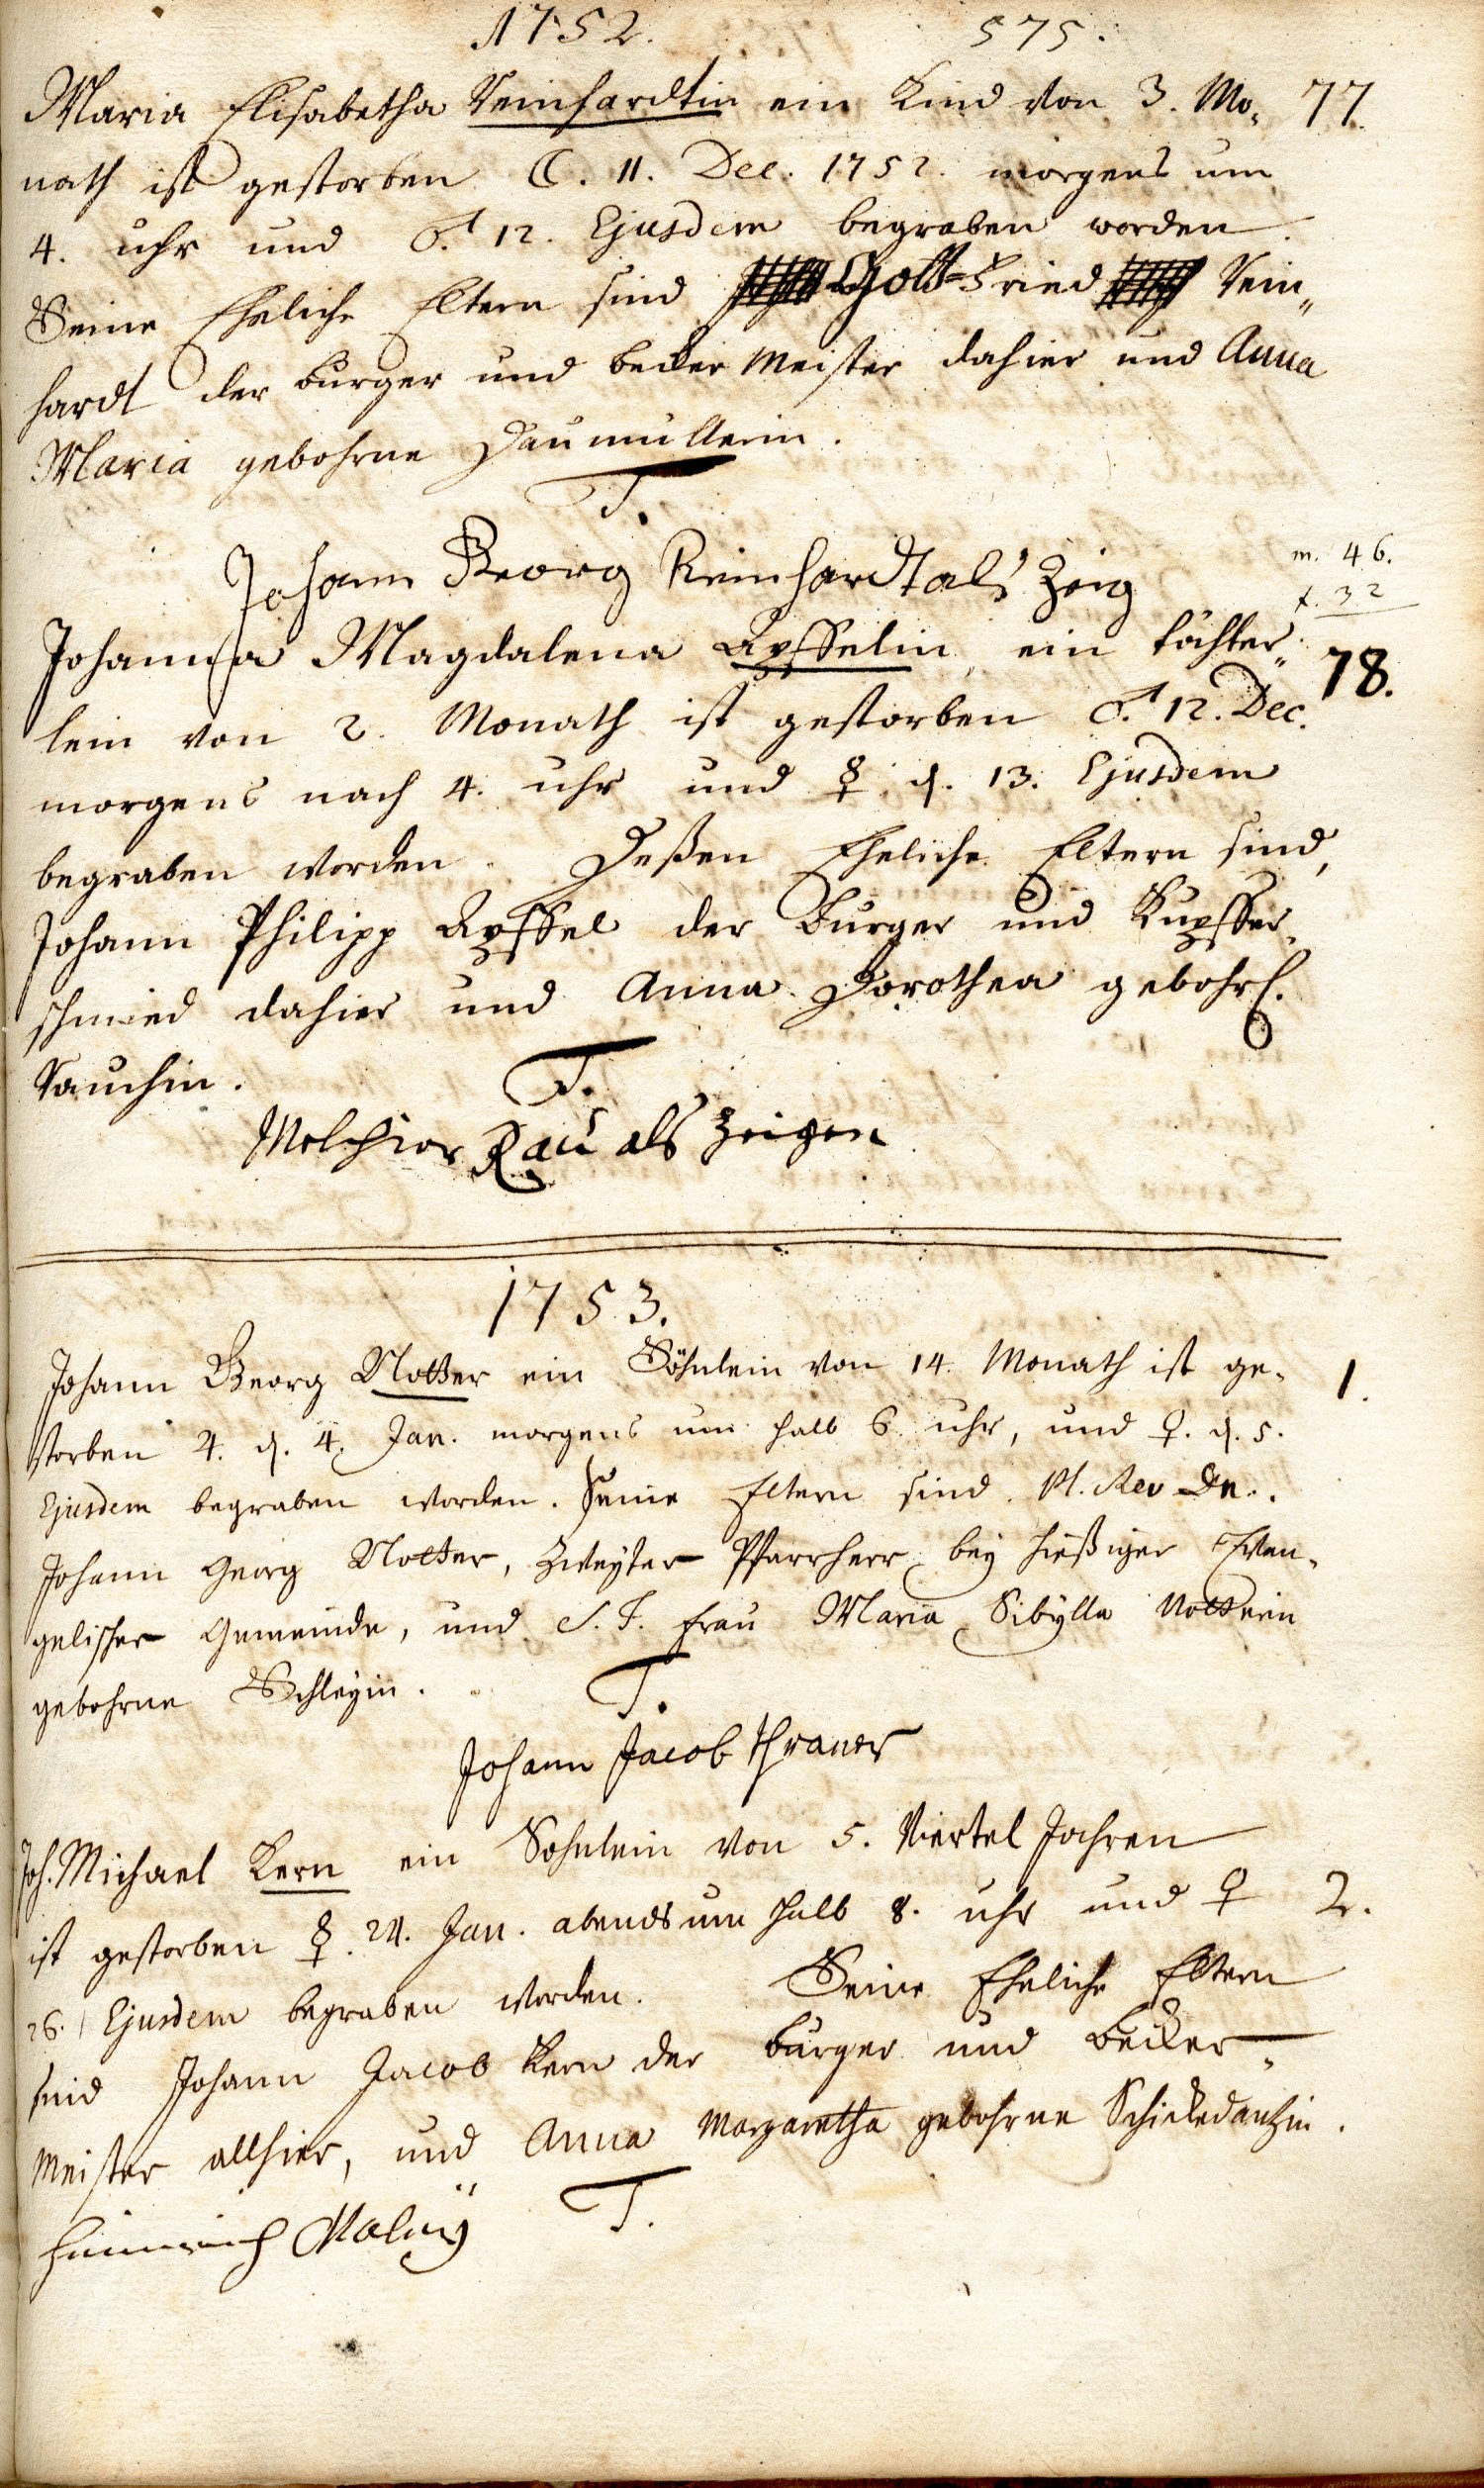 1752. 575.
Maria Elisabetha Reinhardtin ein Kind von 3. Mo- 77.
nath ist gestorben ☾. 11. Dec. 1752. morgens um
4. uhr und ♂. 12. Ejusdem begraben worden.
Seine Eheliche Eltern sind Gott-Fried Rein-
hardt der burger und becker Meister dahier und Anna
Maria gebohrne Daumüllerin.
T.
Johann Georg Reinhardt als Zeig
m. 46.
f. 32
Johanna Magdalena Apffelin ein töchter- 78.
lein von 2. Monath ist gestorben ♂. 12. Dec.
morgens nach 4. uhr und ☿ d. 13. Ejusdem
begraben worden. Deßen Eheliche Eltern sind,
Johann Philipp Apffel der Burger und Kupffer-
schmied dahier und Anna Dorothea gebohrl.
Rauchin.
T.
Melchior Rau als Zeigen
1753.
Johann Georg Notter ein Söhnlein von 14. Monath ist ge- 1.
storben ♃. d. 4. Jan. morgens um halb 6 uhr, und ♀. d. 5.
Ejusdem begraben worden. Seine Eltern sind Pl. Rev Dn.
Johann Georg Notter, Zweyter Pfarrherr bey hießiger Evan-
gelischer Gemeinde, und S. T. Frau Maria Sibylla Notterin
gebohrne Schleyin.
T.
Johann Jacob
Joh. Michael Kern ein Sohnlein von 5. Viertel Jahren
ist gestorben ☿. 24. Jan. abends um halb 8. uhr und ♀ 2.
26. Ejusdem begraben worden. Seine Eheliche Eltern
sind Johann Jacob Kern der burger und becker-
Meister allhier, und Anna Margaretha gebohrne Schickedantzin.
T.